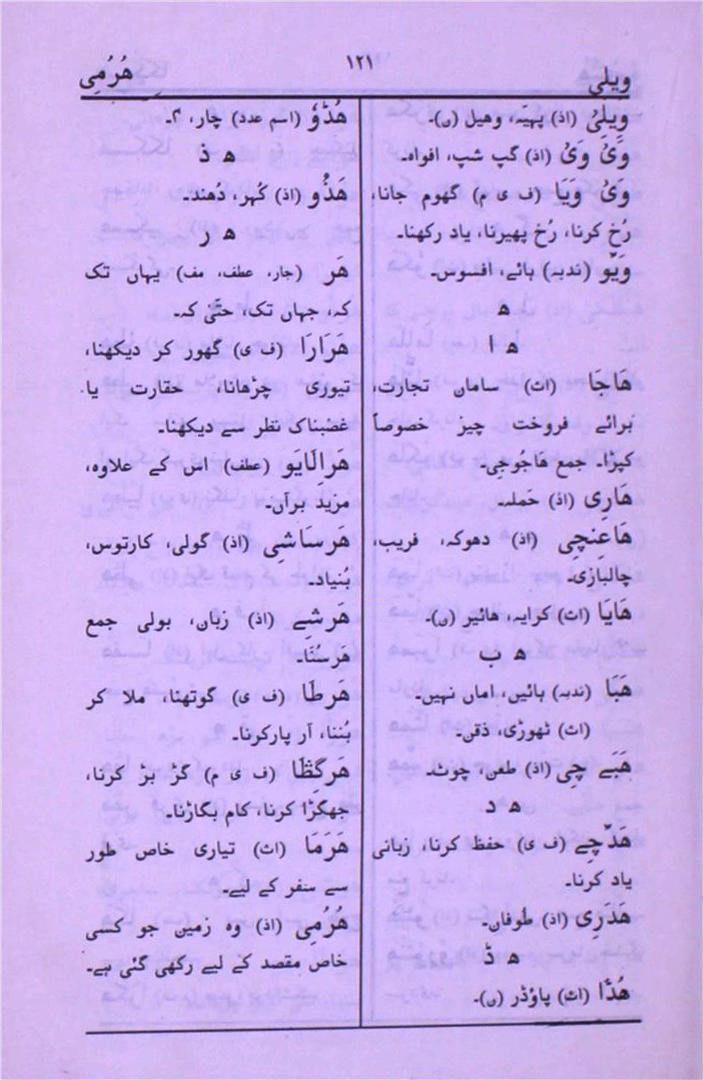 ویلی ۱۲۱ هُرُمِی
وِیلِیْ (اذ) پہیّہ، وهیل (ں)۔
وَیْ وَیْ (اذ) گپ شپ، افواہ۔
وَیْ وَیَا (ف ی م) گھوم جانا،
رُخ کرنا، رُخ پھیرنا، یاد رکھنا۔
وَیّو (ندبہ) ہائے، افسوس۔
ھ
ھ ا
هَاجَا (اث) سامان تجارت،
برائے فروخت چیز خصوصاً
کپڑا۔ جمع هَاجُوجِی۔
هَارِی (اذ) حَملہ۔
هَاعنچِی (اذ) دھوکہ، فریب،
چالبازی۔
هَایَا (اث) کرایہ، هائیر (ں)۔
ھ ب
هَبَا (ندبہ) ہائیں، اماں نہیں۔
(اث) ٹھوڑی، ذقن۔
هَبَے چِی (اذ) طعن، چوٹ۔
ھ د
هَدّچِے (ف ی) حفظ کرنا، زبانی
یاد کرنا۔
هَدَرِی (اذ) طُوفان۔
ھ ڈ
هُڈا (اث) پاؤڈر (ں)۔
هُڈوْ (اسم عدد) چار، ۴۔
ھ ذ
هَذُو (اذ) کُہر، دُھند۔
ھ ر
هَر (جار، عطف، مف) یہاں تک
کہ، جہاں تک، حتّٰی کہ۔
هَرَارَا (ف ی) گھور کر دیکھنا،
تیوری چڑھانا، حقارت یا
غضبناک نظر سے دیکھنا۔
هَرالَایو (عطف) اس کے علاوہ،
مزید برآں۔
هَرسَاشِی (اذ) گولی، کارتوس،
بُنیاد۔
هَرشَے (اذ) زبان، بولی جمع
هَرسُنَا۔
هَرطَا (ف ی) گوتھنا، ملا کر
بُننا، آر پارکرنا۔
هَرگظَا (ف ی م) گڑ بڑ کرنا،
جھگڑا کرنا، کام بگاڑنا۔
هَرَمَا (اث) تیاری خاص طور
سے سفر کے لیے۔
هُرُمِی (اذ) وہ زمین جو کسی
خاص مقصد کے لیے رکھی گئی ہے۔